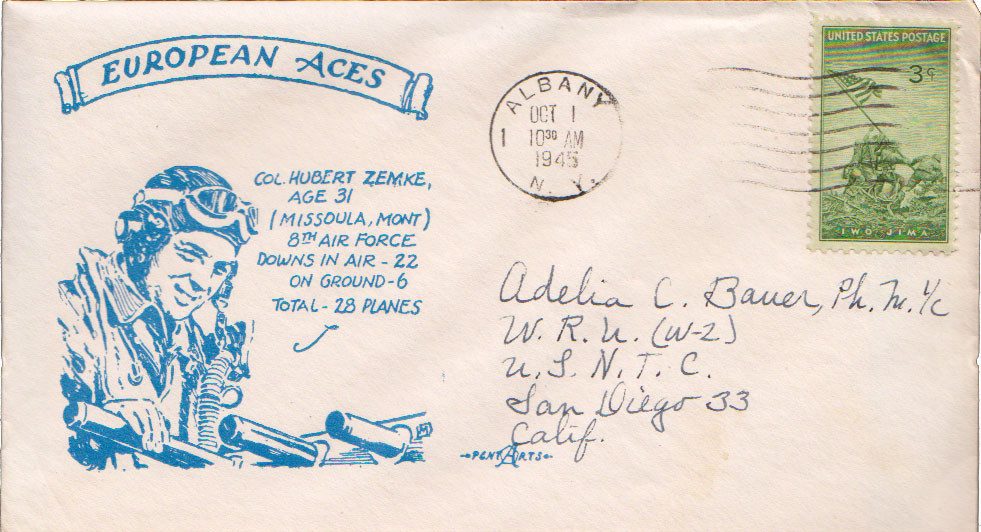 EUROPEAN ACES
COL. HUBERT ZEMKE,
AGE 31
(MISSOULA, MONT)
8TH AIR FORCE
DOWNS IN AIR - 22
ON GROUND - 6
TOTAL - 28 PLANES
PENT ARTS
ALBANY
OCT 1
1 10 30 AM
1945
N. Y.
UNITED STATES POSTAGE
3¢
IWO JIMA
Adelia C. Bauer, Ph. M. 1/c
W. R. U. (W-2)
U. S. N. T. C.
San Diego 33
Calif.